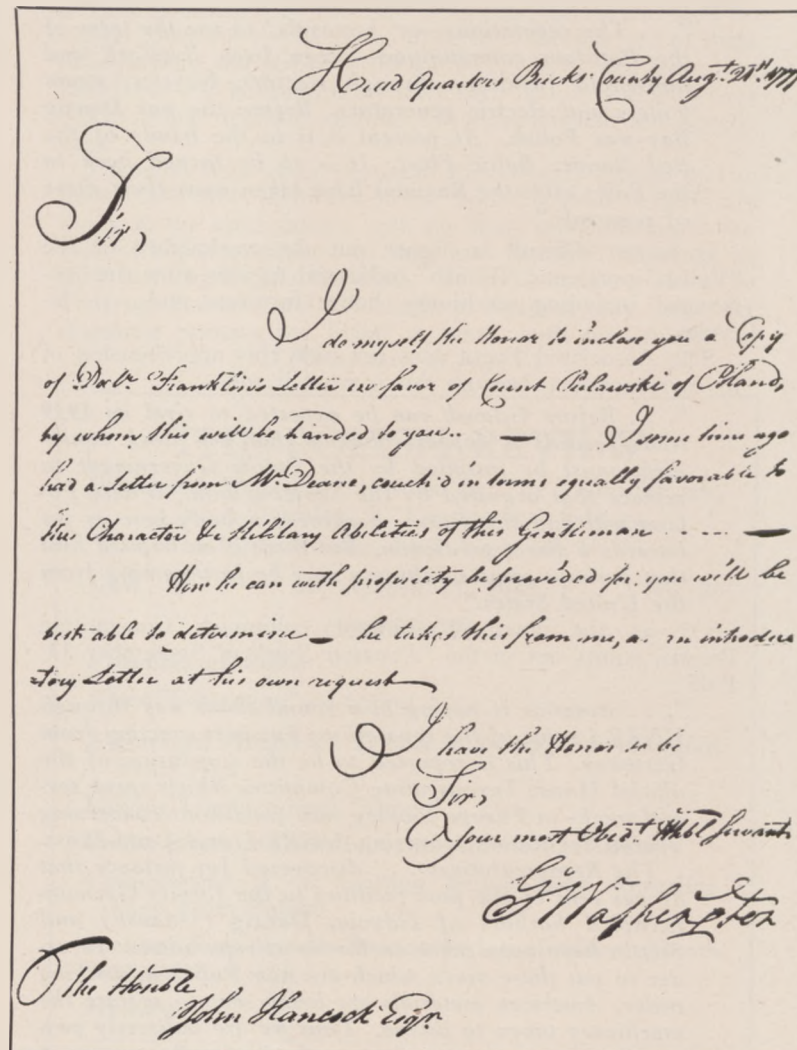 Head Quarters Bucks County Augt. 21st. 1777
Sir,
I do myself the Honor to inclose you a Copy
of Doctr. Franklin's Letter in favor of Count Pulawski of Poland,
by whom this will be handed to you.. — I some time ago
had a Letter from Mr. Deane, couch'd in terms equally favorable to
the Character & Military Abilities of this Gentleman ..... —
How he can with propriety be provided for, you will be
best able to determine — he takes this from me, as an introduc
=tory Letter at his own request —
I have the Honor to be
Sir,
Your most Obedt. Hbl Servant
Go Washington
The Honble
John Hancock Esqr.